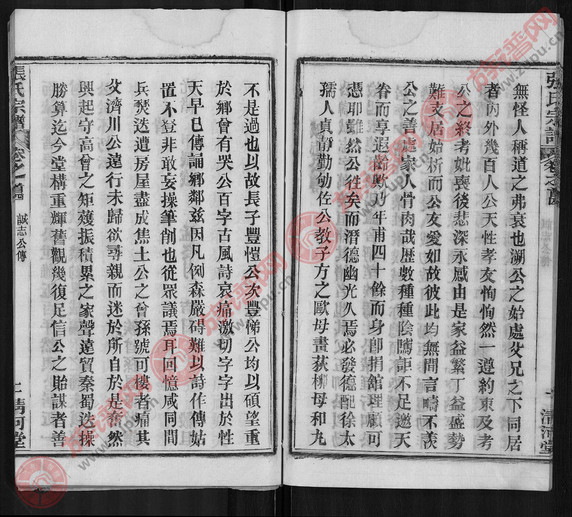 張氏宗譜
卷之首
無怪人稱道之弗衰也溯公之始處父兄之下同居
者內外幾百人公天性孝友恂恂然一遵約束及考
公之終考妣喪後悲深永感由是家益繁丁益盛勢
難支居始析而公友愛如故彼此均無間言疇不羨
公之善處家人骨肉哉歷數種種陰隲詎不足邀天
眷而享遐齡歟乃年甫四十餘而身即捐館理屬可
悲耶雖然公往矣而潛德幽光久焉必發德配徐太
孺人貞靜勤劬佐公教子方之歐母畫荻柳母和丸
清河堂
不是過也以故長子豐愷公次豐悌公均以碩望重
於鄉曾有哭公百字古風詩哀痛激切字字出於性
天早已傳誦鄉鄰茲因凡例森嚴碍難以詩作傳姑
置不登非敢妄操筆削也從眾議焉耳回憶咸同間
兵燹迭遭房屋盡成焦土公之曾孫號可樓者痛其
父濟川公遠行未歸欲尋親而迷於所自於是奮然
興起守高曾之矩矱振積累之家聲遠貿秦蜀迭操
勝算迄今堂構重輝舊觀幾復足信公之貽謀者善
張氏宗譜
誠志公傳
清河堂
家譜网
www.zupu.cn